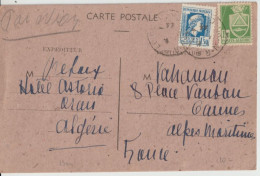 Par avion
CARTE POSTALE
EXPÉDITEUR
M
Hôtel Astoria
Oran
Algérie
M Vahanian
8 Place Vauban
Cannes
Alpes Maritimes
France